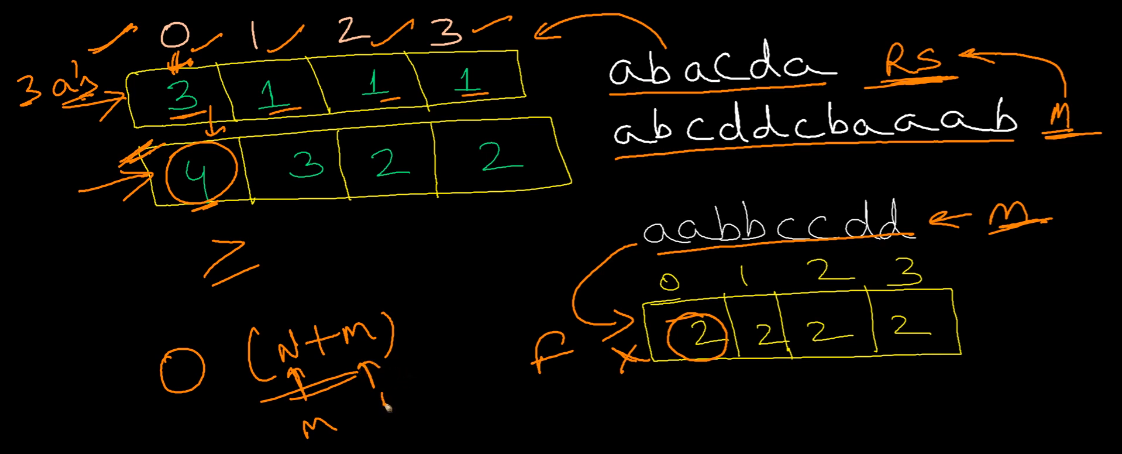 0 1 2 3
3 a's 3 1 1 1
4 3 2 2
≥
O (N+M)
M
abacda RS
abcddcbaaaab M
aabbccdd M
0 1 2 3
F × 2 2 2 2